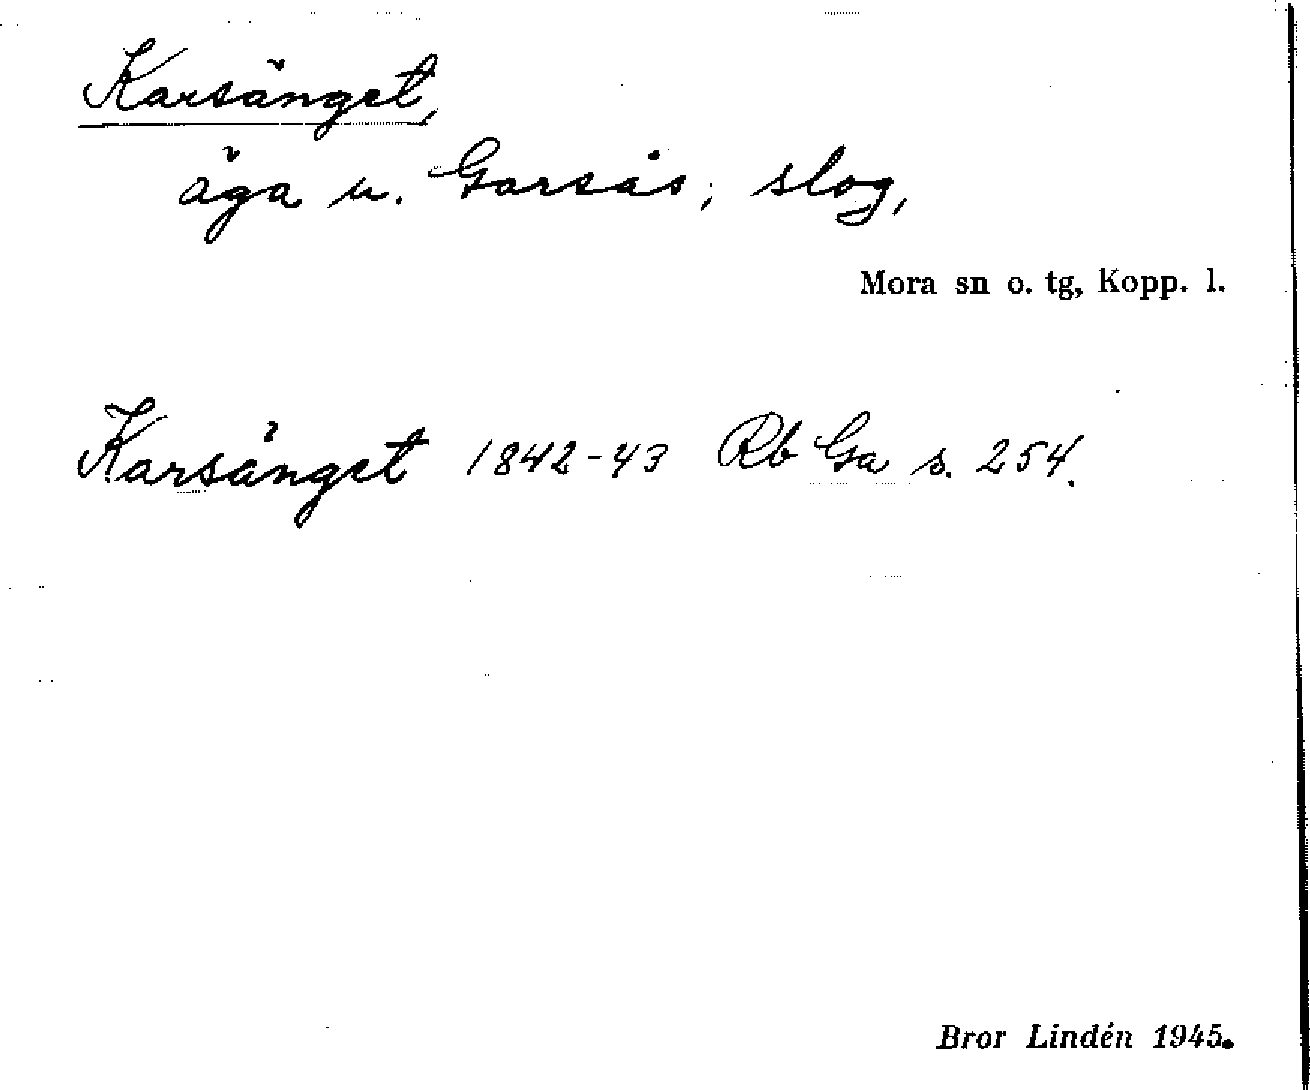 Karsänget,
äga u. Garsås; slog,
Mora sn o. tg, Kopp. l.
Karsänget 1842-43 Rb Ga s. 254.
Bror Lindén 1945.